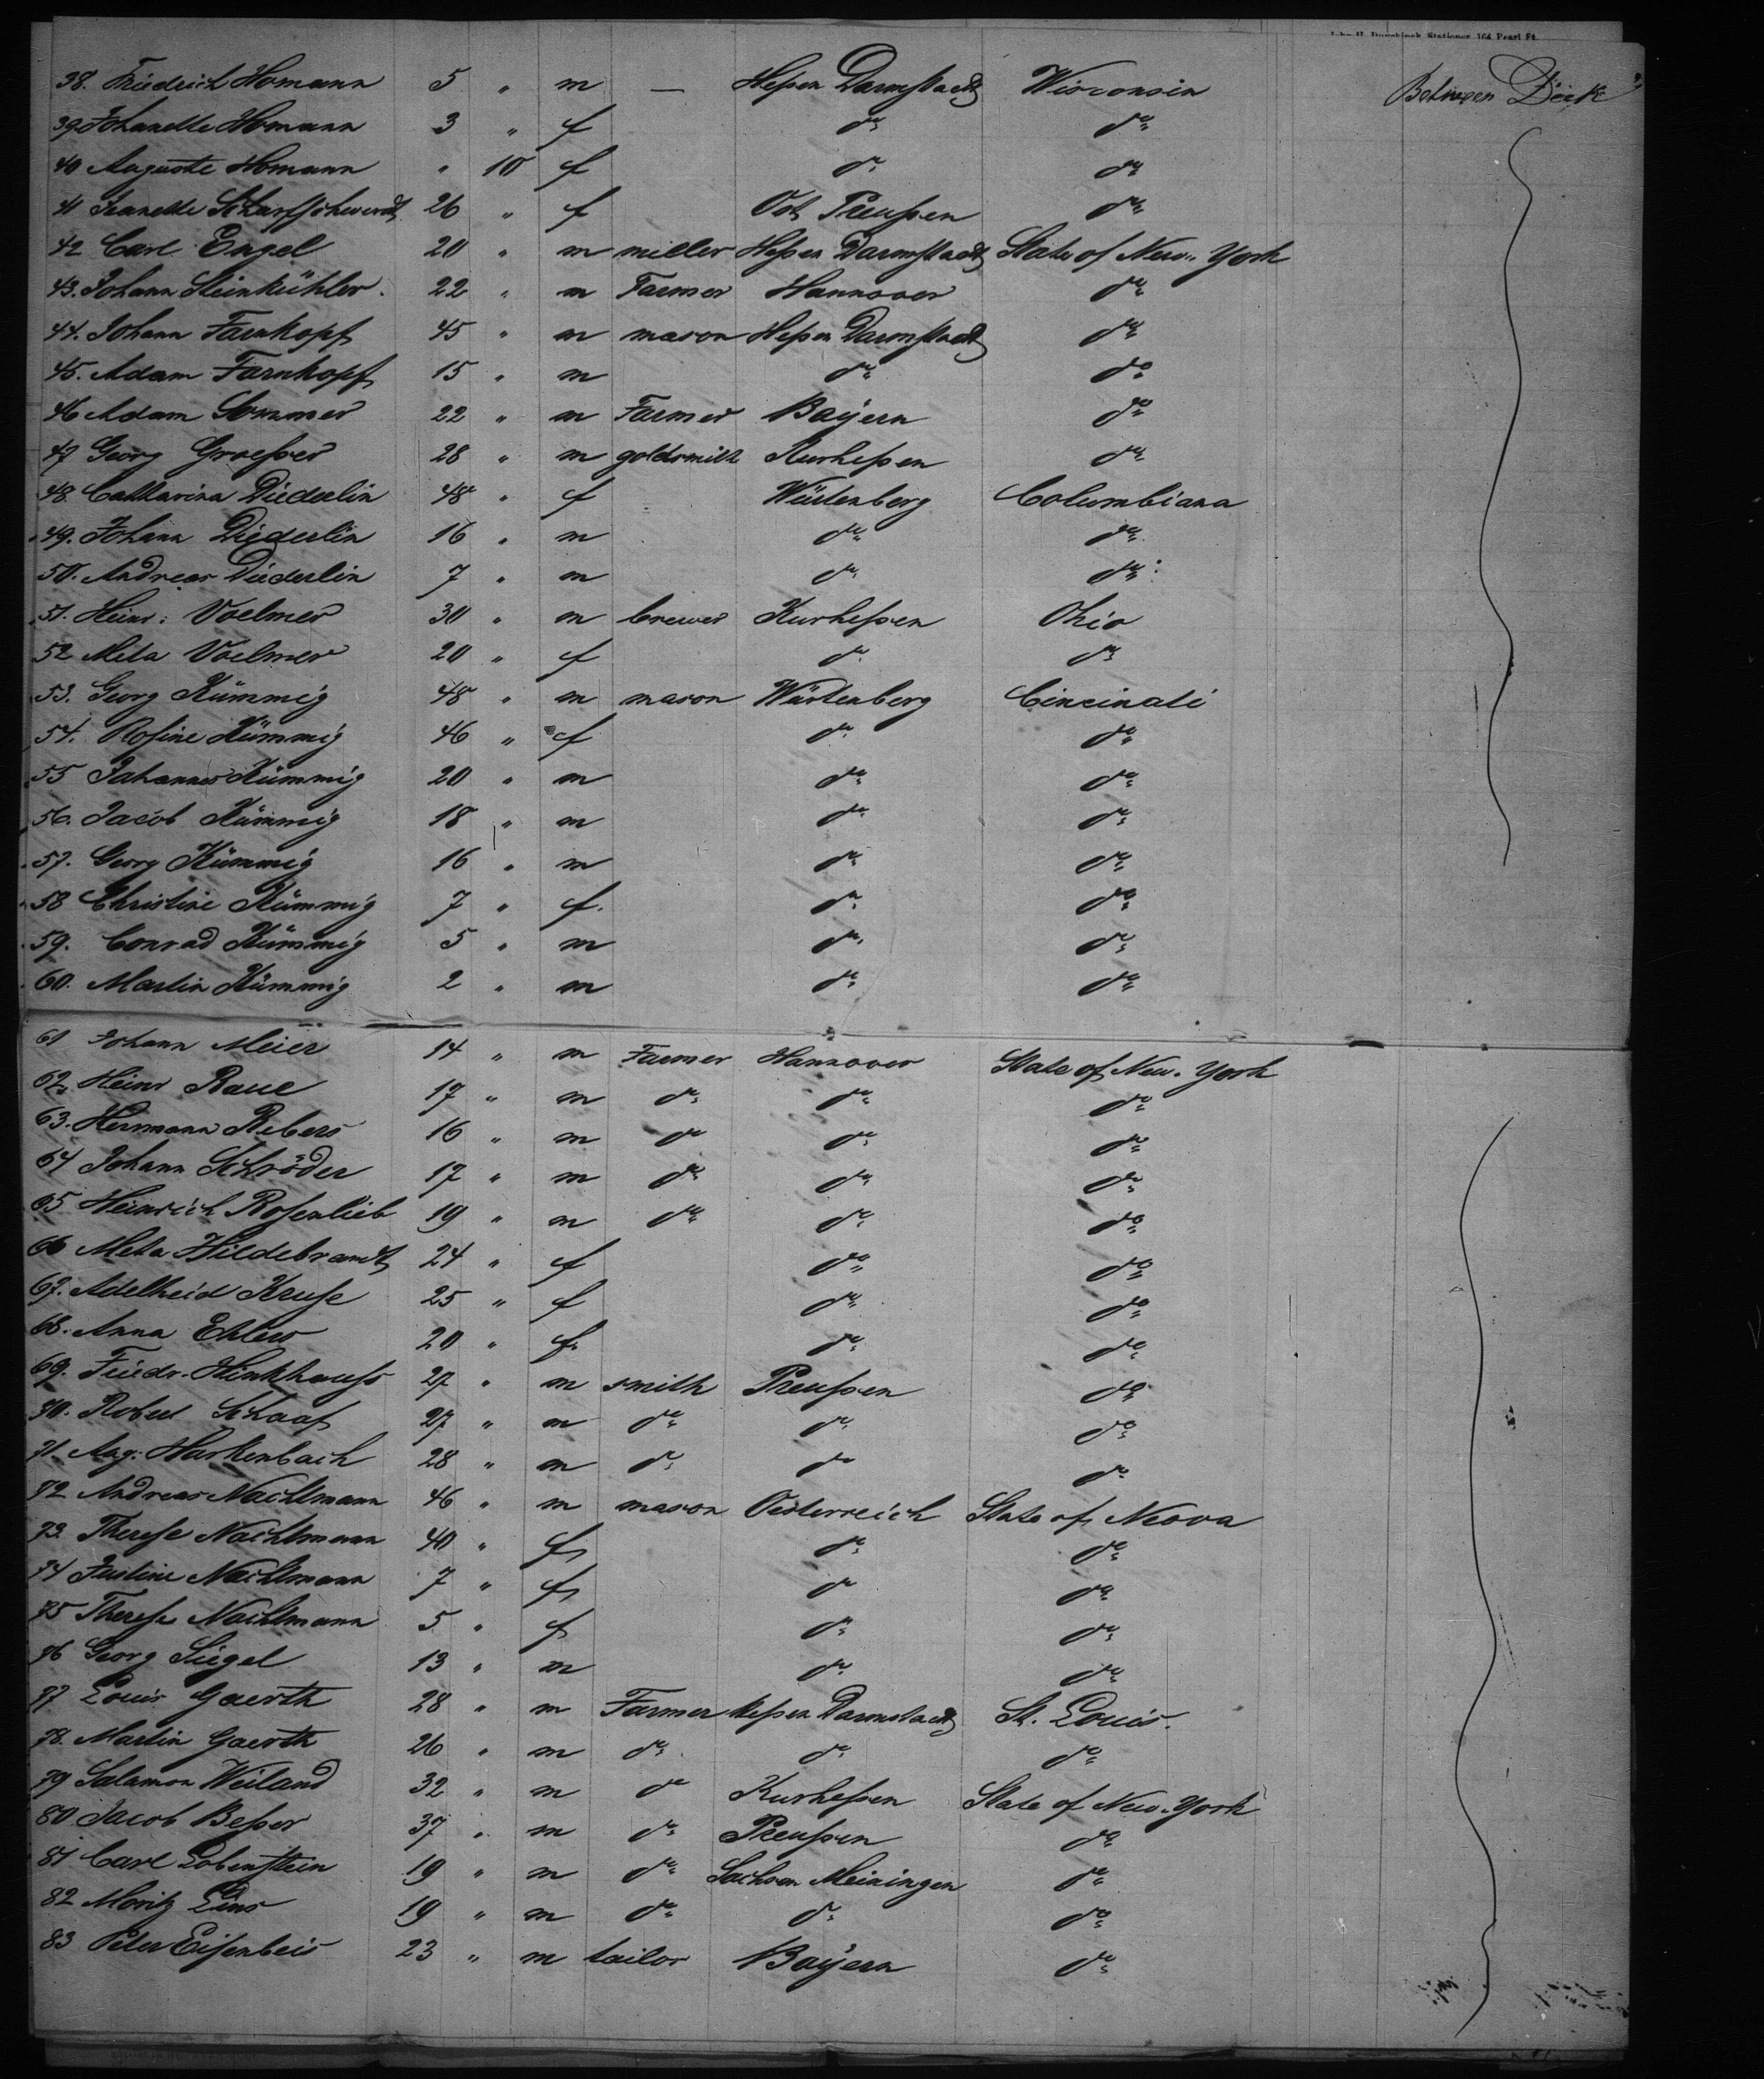 38. Friedrich Homann 5 " m — Heßen Darmstadt Wisconsin Between Deck
39. Johanette Homann 3 " f do do
40 Auguste Homann " 10 f do do
41 Jeanette Scharffschwerdt 26 " f Ost Preußen do
42 Carl Engel 20 " m miller Heßen Darmstadt State of New-York
43. Johann Steinkühler. 22 " m Farmer Hannover do
44. Johann Farnkopf 45 " m mason Heßen Darmstadt do
45. Adam Farnkopf 15 " m do do
46 Adam Sommer 22 " m Farmer Bayern do
47 Georg Groeßer 28 " m goldsmith Kurheßen do
48. Catharina Diederlin 48 " f Würtenberg Columbiana
49. Johann Diederlin 16 " m do do
50. Andreas Diederlin 7 " m do do
51. Heinr: Voelmer 30 " m brewer Kurheßen Ohio
52 Meta Voelmer 20 " f do do
53. Georg Kümmig 48 " m mason Würtenberg Cincinati
54. Rosine Kümmig 46 " f do do
55 Johannes Kümmig 20 " m do do
56. Jacob Kümmig 18 " m do do
57. Georg Kümmig 16 " m do do
58 Christine Kümmig 7 " f. do do
59. Conrad Kümmig 5 " m do do
60. Martin Kümmig 2 " m do do
61 Johann Meier 14 " m Farmer Hannover State of New-York
62. Heinr Raue 17 " m do do do
63. Hermann Rebers 16 " m do do do
64 Johann Schröder 17 " m do do do
65 Heinrich Rosenlieb 19 " m do do do
66 Meta Hildebrandt 24 " f do do
67. Adelheid Kruse 25 " f do do
68. Anna Ehlers 20 " f. do do
69. Friedr. Hinkhauß 27 " m smith Preußen do
70. Robert Schaaf 27 " m do do do
71. Aug: Harkenbach 28 " m do do do
72 Andreas Nachtmann 46 " m mason Oesterreich State of
73. Therese Nachtmann 40 " f do do
74 Justine Nachtmann 7 " f do do
75 Therese Nachtmann 5 " f do do
76 Georg Siegel 13 " m do do
77 Louis Gaerth 28 " m Farmer Heßen Darmstadt St. Louis.
78. Martin Gaerth 26 " m do do do
79 Salamon Weiland 32 " m do Kurheßen State of New-York
80 Jacob Beßer 37 " m do Preußen do
81 Carl Lobenstein 19 " m do Sachsen Meiningen do
82 Moritz 19 " m do do do
83 Peter Eisenbeis 23 " m tailor Bayern do